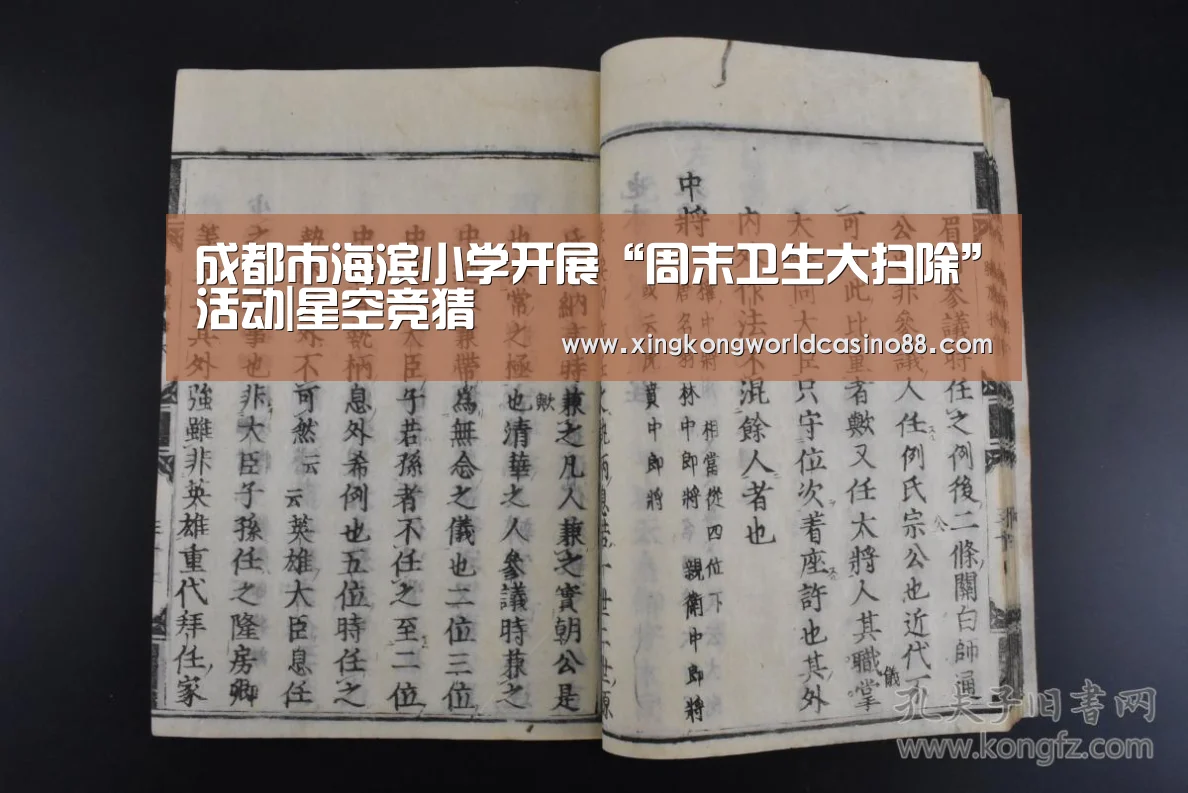 成都市海滨小学开展“周末卫生大扫除”
活动|星空竞猜
www.xingkongworldcasino88.com
參議將任之例後二條關白師通
非參議人任例氏宗公也近代
此比量者歟又任太將人其職掌
同大臣只守位次着座許也其外
内外作法不混餘人者也
中將
相當從四位下
羽林中郎將 親衛中郎將
虎賁中郎將
時兼之凡人兼之實朝公是
常之極也清華之人參議時兼之
兼帶為無念之儀也二位三位
大臣子若孫者不任之至二位
執柄息外希例也五位時任之
外不可然云云英雄大臣息任
事也非大臣子孫任之隆房卿
其外強雖非英雄重代拜任家
孔夫子旧书网
www.kongfz.com